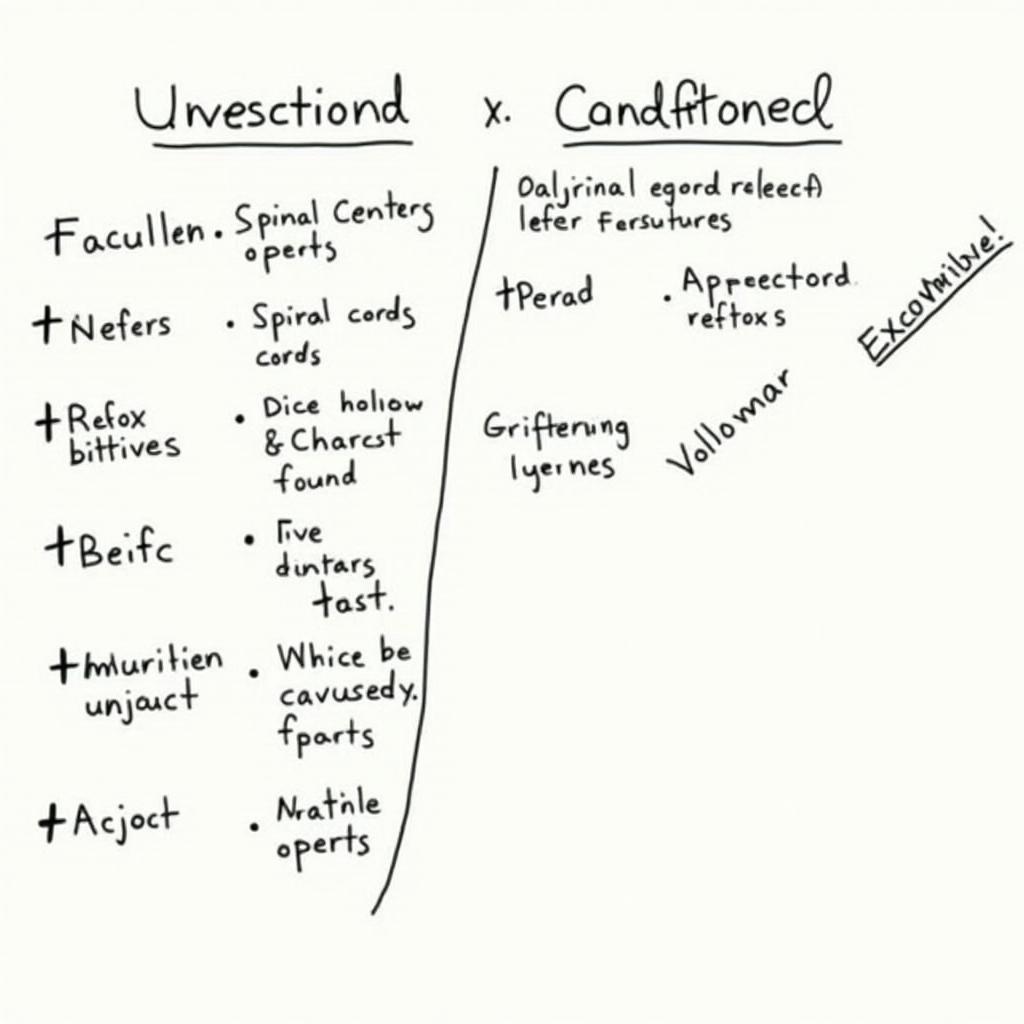 Unvesctiond x. Candftoned
Facullen. Spinal Centers
operts
+Nefers · Spiral cords
cords
+Refox
bittives
· Dice holiow
& Charcst
found
+Beifc
· Five
dintars
tast.
+Inluritien
unjauct
· Whice be
cavusedy.
fparts
+Acjoct
· Nratinle
operts
Oaljrinal egord releecA
lefer Fersutures
+Perad · Appeectord.
reftoxs
Excovnribve!
Grifterung
lyernes
Vollomar